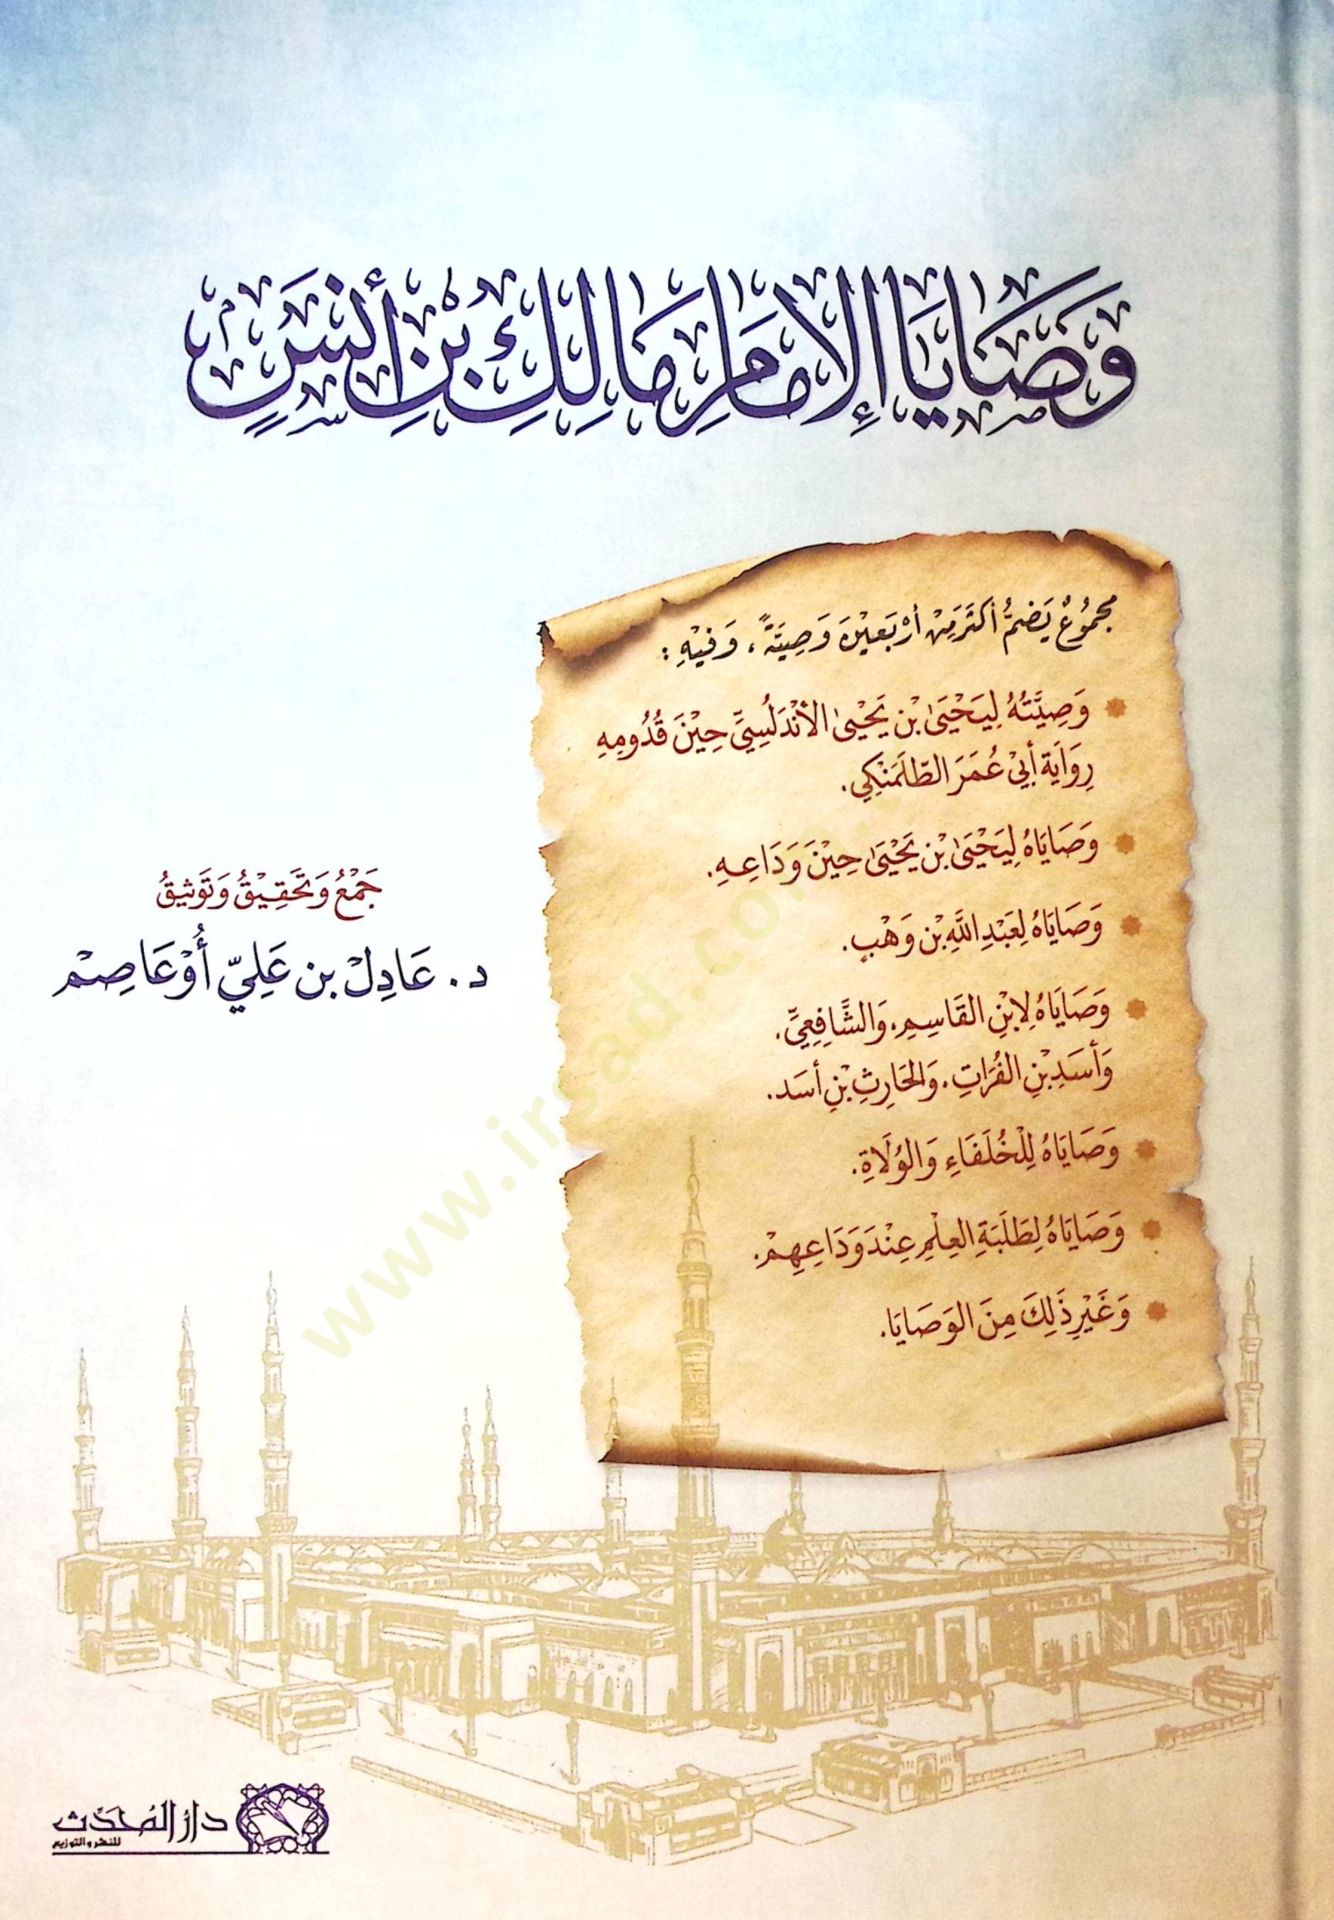 وَصَايَا الإِمَامِ مَالِكِ بْنِ أَنَسٍ
مجمُوعٌ يَضمُّ أكثَرَ مِنْ أرْبَعيْنَ وَصِيَّةً، وَفيْهِ :
وَصِيَّتُهُ لِيَحْيَىٰ بْن يَحْيىٰ الأَنْدَلُسِيِّ حِيْنَ قُدُومِهِ
رِوَاَيَة أَبِيْ عُمَرَ الطَّلَمَنْكِي.
وَصَايَاهُ لِيَحْيَىٰ بْن يَحْيَىٰ حِيْنَ وَدَاعِـهِ.
وَصَايَاهُ لِعَبْدِ اللَّهِ بْن وَهْبٍ.
وَصَايَاهُ لِابْنِ القَاسِمِ، وَالشَّافِعِيِّ،
وَأَسَدِ بْنِ الفُرَاتِ، وَالحَارِثِ بْنِ أَسَد.
وَصَايَاهُ لِلْخُلَفَاءِ وَالوُلَاةِ.
وَصَايَاهُ لِطَلَبَةِ العِلْمِ عِنْدَ وَدَاعِهِمْ.
وَغَيْرِ ذَلِكَ مِنَ الوَصَايَا.
جَمْعُ وَتَحْقِيْقُ وَتَوْثِيقُ
د. عَادِلْ بن عَلِيّ أُوْعَاصِمْ
www.irsad.com
دار المُحَدّث
للنشر والتوزيع